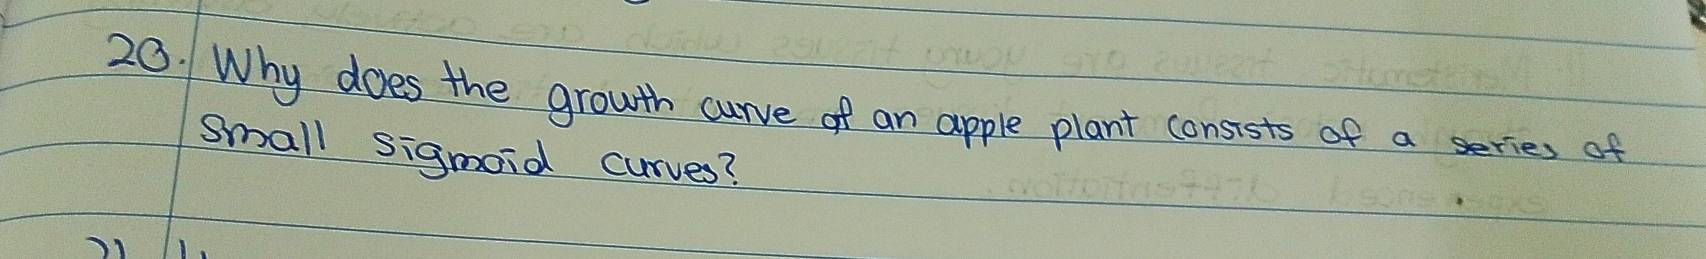 20. Why does the growth curve of an apple plant consists of a series of
small sigmoid curves?